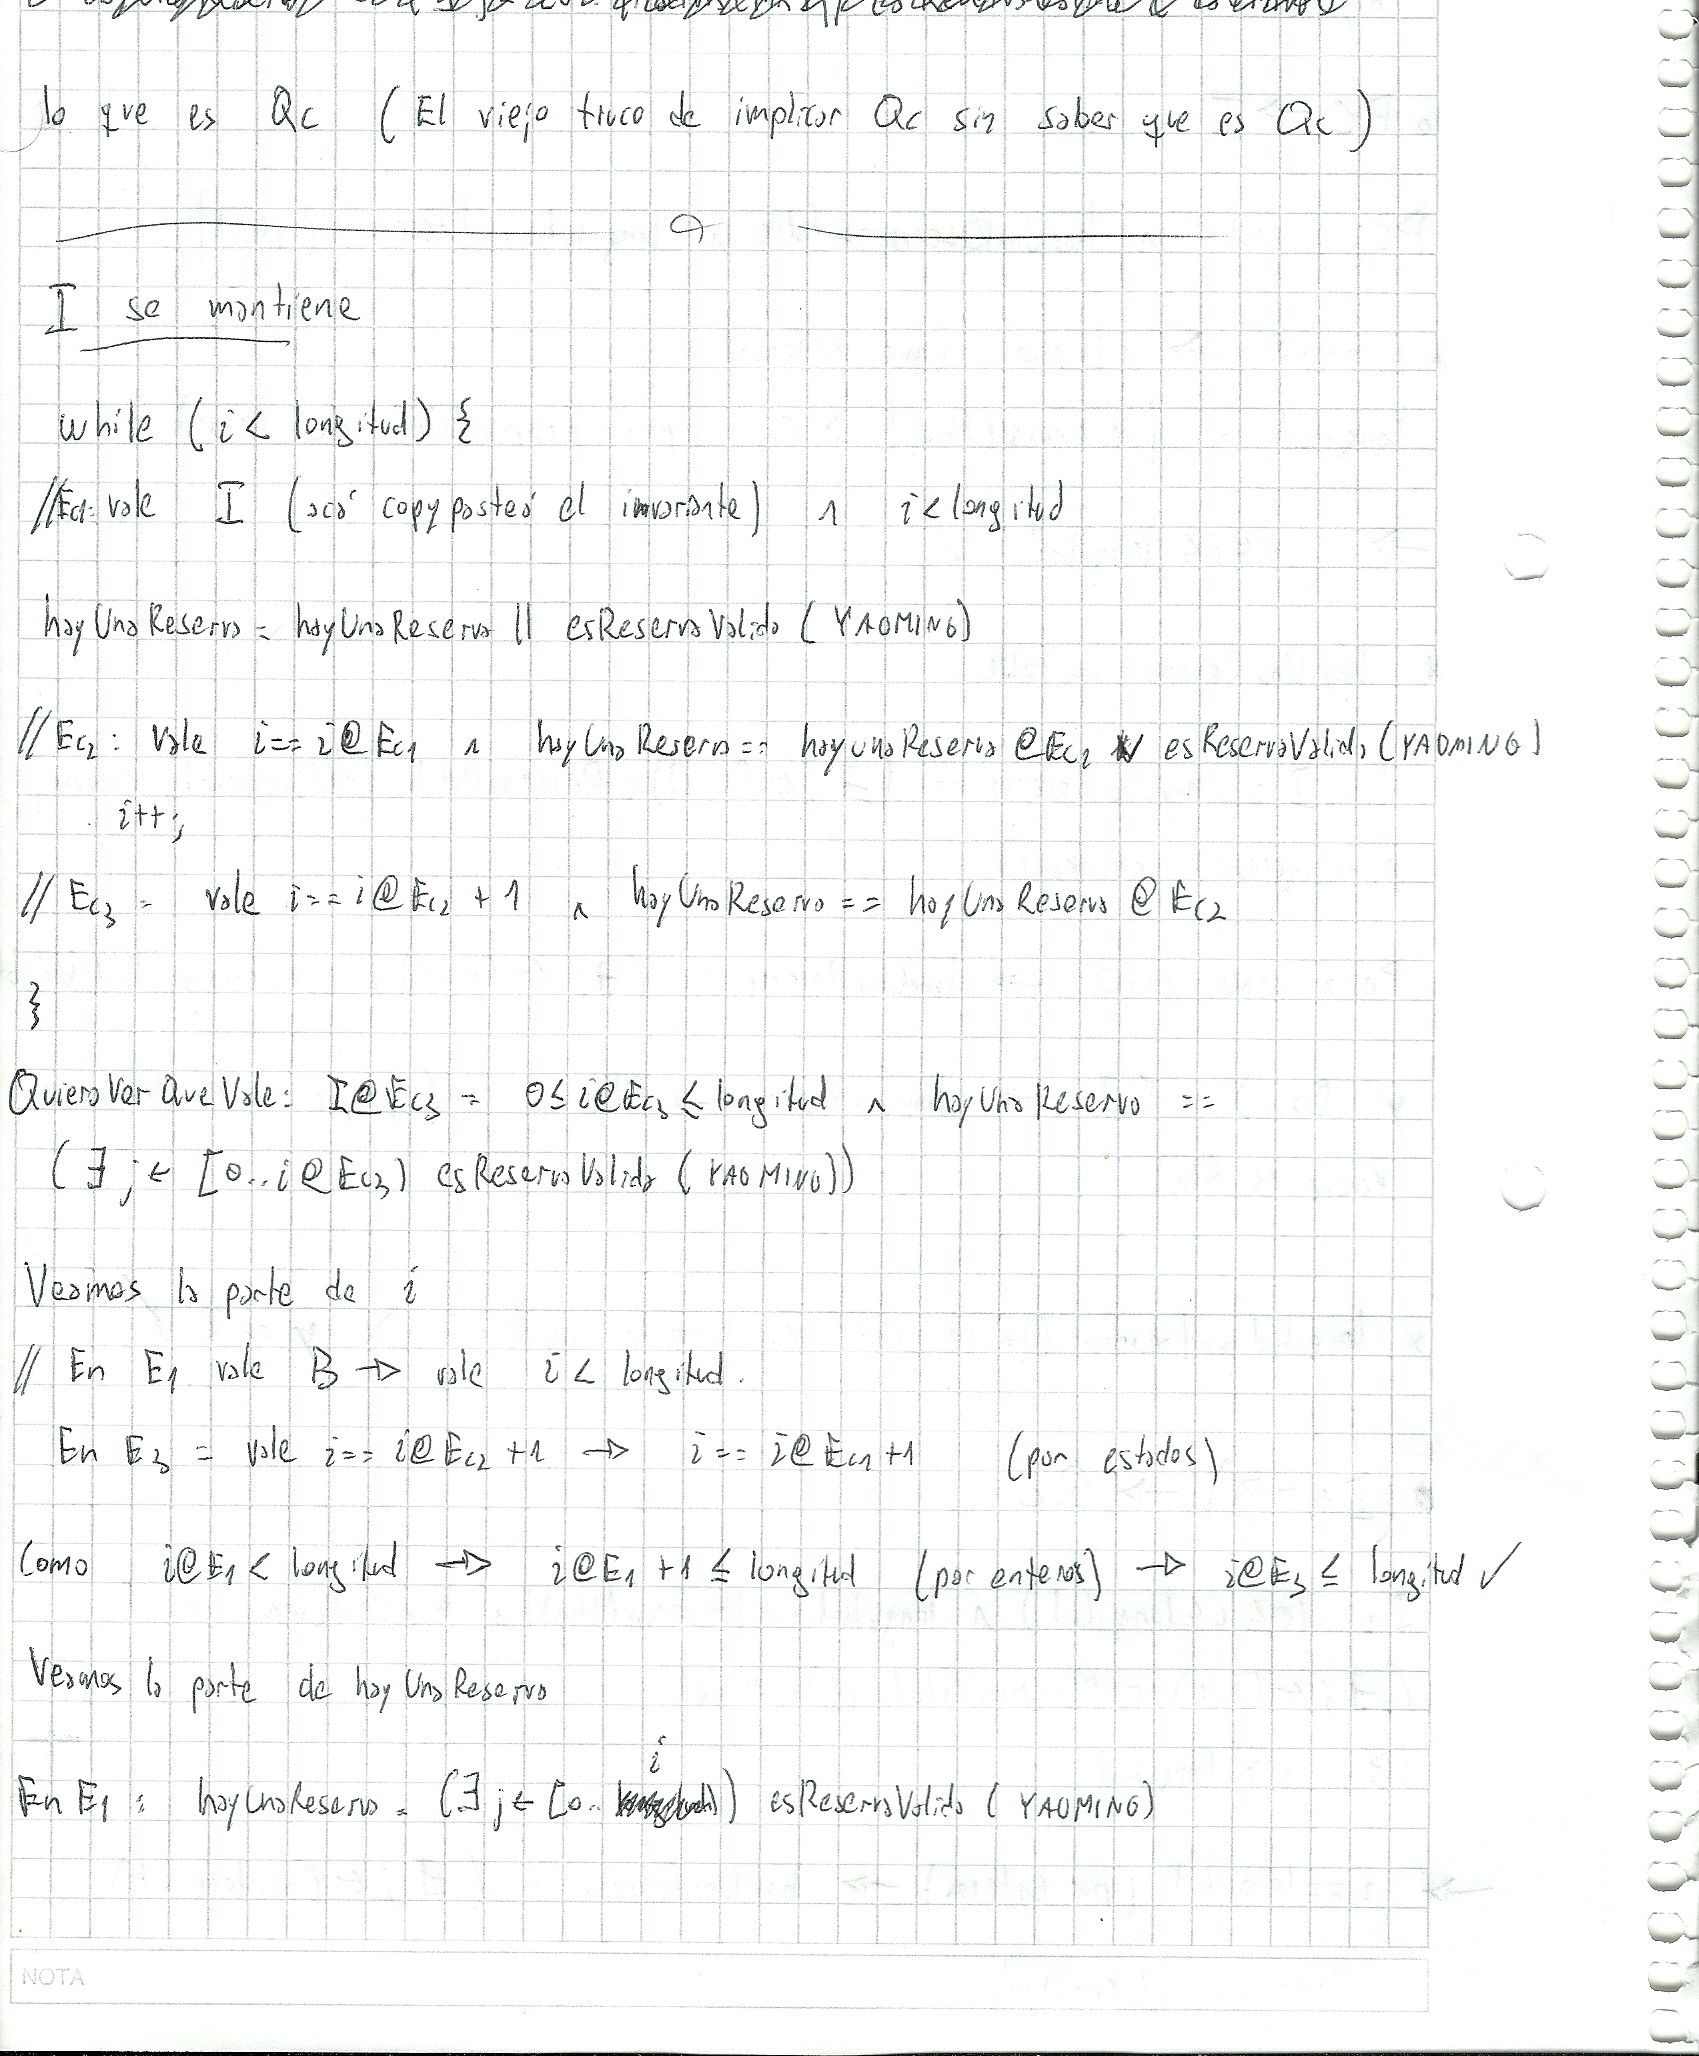 lo que es Qc (El viejo truco de implicar Qc sin saber que es Qc)
I se mantiene
while (i < longitud) {
//Ec1: vale I (acá copypasteá el invariante) ∧ i < longitud
hayUnaReserva = hayUnaReserva || esReservaValida (YAOMING)
// Ec2: vale i == i@Ec1 ∧ hayUnaReserva == hayUnaReserva @Ec2 ∨ esReservaValida (YAOMING)
i++;
// Ec3 = vale i == i@Ec2 + 1 ∧ hayUnaReserva == hayUnaReserva @ Ec2
}
QuieroVerQueVale: I@Ec3 = 0 ≤ i@Ec3 ≤ longitud ∧ hayUnaReserva ==
(∃ j ← [0..i@Ec3) esReservaValida (YAOMING))
Veamos la parte de i
// En E1 vale B → vale i < longitud.
En E3 = vale i == i@Ec2 +1 → i == i@Ec1 +1 (por estados)
Como i@E1 < longitud → i@E1 +1 ≤ longitud (por enteros) → i@E3 ≤ longitud ✓
Veamos la parte de hayUnaReserva
En E1 : hayUnaReserva = (∃ j ← [0.. i) esReservaValida (YAOMING)
NOTA